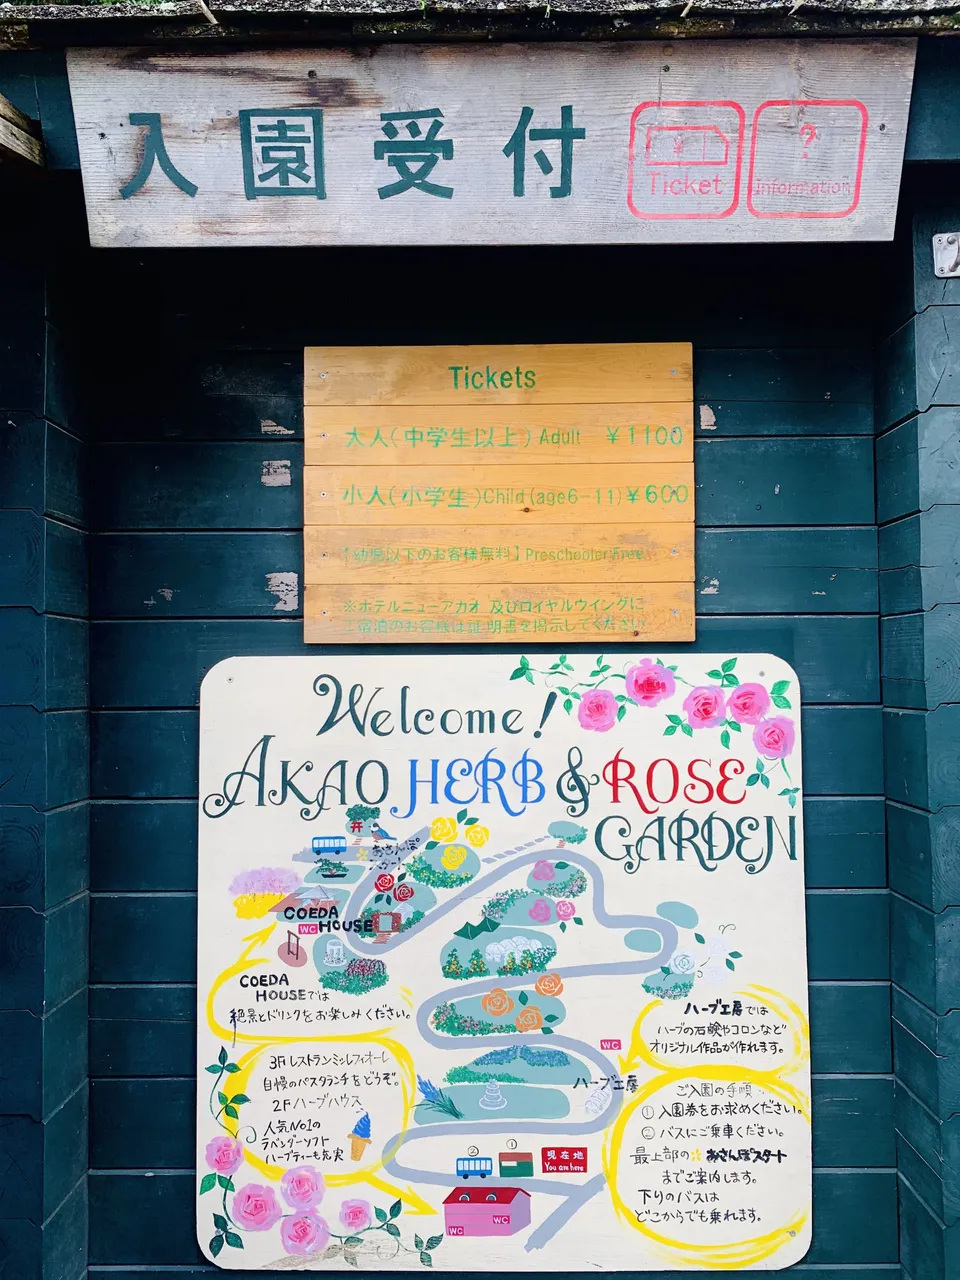 入園受付
Ticket
?
Information
Tickets
大人(中学生以上) Adult ¥1100
小人(小学生)Child(age6-11)¥600
【幼児以下のお客様無料】Preschooler free
※ホテルニューアカオ 及びロイヤルウイングに
ご宿泊のお客様は証明書を掲示してください
Welcome!
AKAO HERB & ROSE
GARDEN
おさんぽ
COEDA
HOUSE
WC
COEDA
HOUSEでは
絶景とドリンクをお楽しみください。
3Fレストランミッレフィオーレ
自慢のパスタランチをどうぞ。
2Fハーブハウス
人気No1の
ラベンダーソフト
ハーブティーも充実
ハーブ工房では
ハーブの石鹸やコロンなど
オリジナル作品が作れます。
WC
ハーブ工房
ご入園の手順
① 入園券をお求めください。
② バスにご乗車ください。
最上部の☆おさんぽスタート
までご案内します。
下りのバスは
どこからでも乗れます。
②
①
現在地
You are here
WC
WC